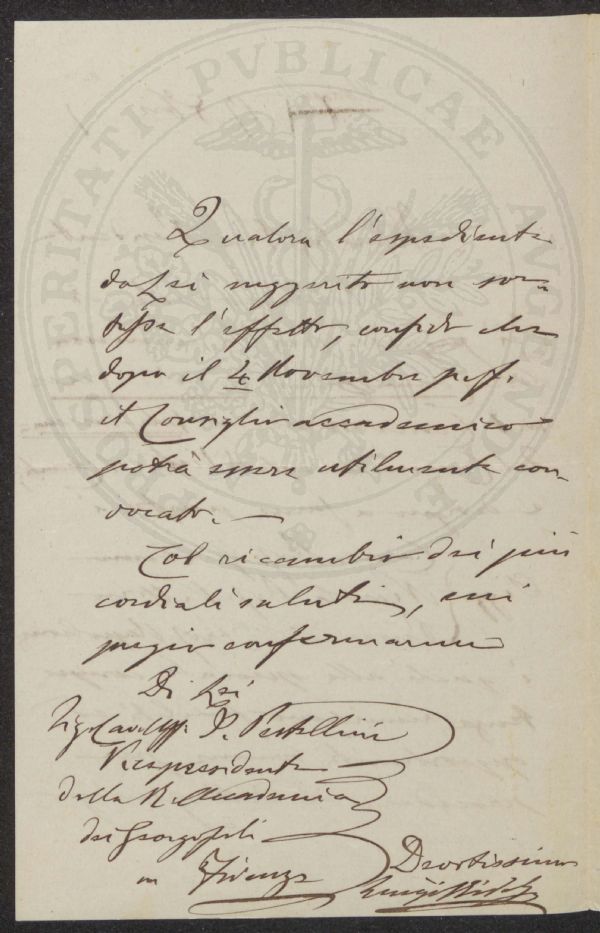 PROSPERITATI PVBLICAE AVGENDAE
Qualora l'espediente
da Lei suggerito non sor-
tisse l'effetto, confido che
dopo il 4 Novembre p.º f.º
il Consiglio accademico
potrà essere utilmente con-
vocato. —
Col ricambio dei più
cordiali saluti, mi
pregio confermarmi
Di Lei
Sig. Cav. Uff. I. Pestellini
Vicepresidente
della R. Accademia
dei Georgofili
in Firenze
Devotissimo
Luigi